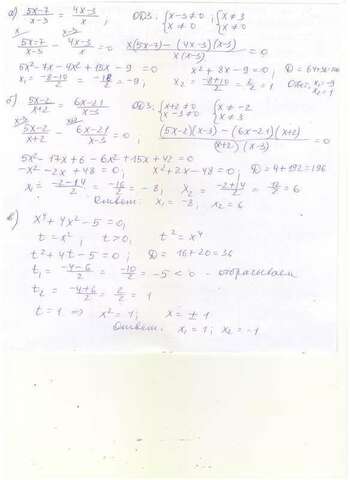 а) (5x-7)/(x-3) = (4x-3)/x ; ОДЗ: { x-3≠0 x≠0 ; { x≠3 x≠0
(5x-7)/(x-3) - (4x-3)/x = 0 (x(5x-7)-(4x-3)(x-3))/(x(x-3)) = 0
5x² - 7x - 4x² + 15x - 9 = 0 x² + 8x - 9 = 0; D = 64+36=100
x₁ = (-8-10)/2 = -18/2 = -9; x₂ = (-8+10)/2 = 2/2 = 1 Ответ: x₁=-9 x₂=1
б) (5x-2)/(x+2) = (6x-21)/(x-3) ОДЗ: { x+2≠0 x-3≠0 { x≠-2 x≠3
(5x-2)/(x+2) - (6x-21)/(x-3) = 0; ((5x-2)(x-3)-(6x-21)(x+2))/((x+2)(x-3)) = 0
5x² - 17x + 6 - 6x² + 15x + 42 = 0
-x² - 2x + 48 = 0; x² + 2x - 48 = 0; D = 4+192=196
x₁ = (-2-14)/2 = -16/2 = -8; x₂ = (-2+14)/2 = 12/2 = 6
Ответ: x₁ = -8; x₂ = 6
в) x⁴ + 4x² - 5 = 0;
t = x²; t>0, t² = x⁴
t² + 4t - 5 = 0; D = 16+20=36
t₁ = (-4-6)/2 = -10/2 = -5 < 0 - отбрасываем
t₂ = (-4+6)/2 = 2/2 = 1
t = 1 ⇒ x² = 1; x = ±1
Ответ: x₁ = 1; x₂ = -1